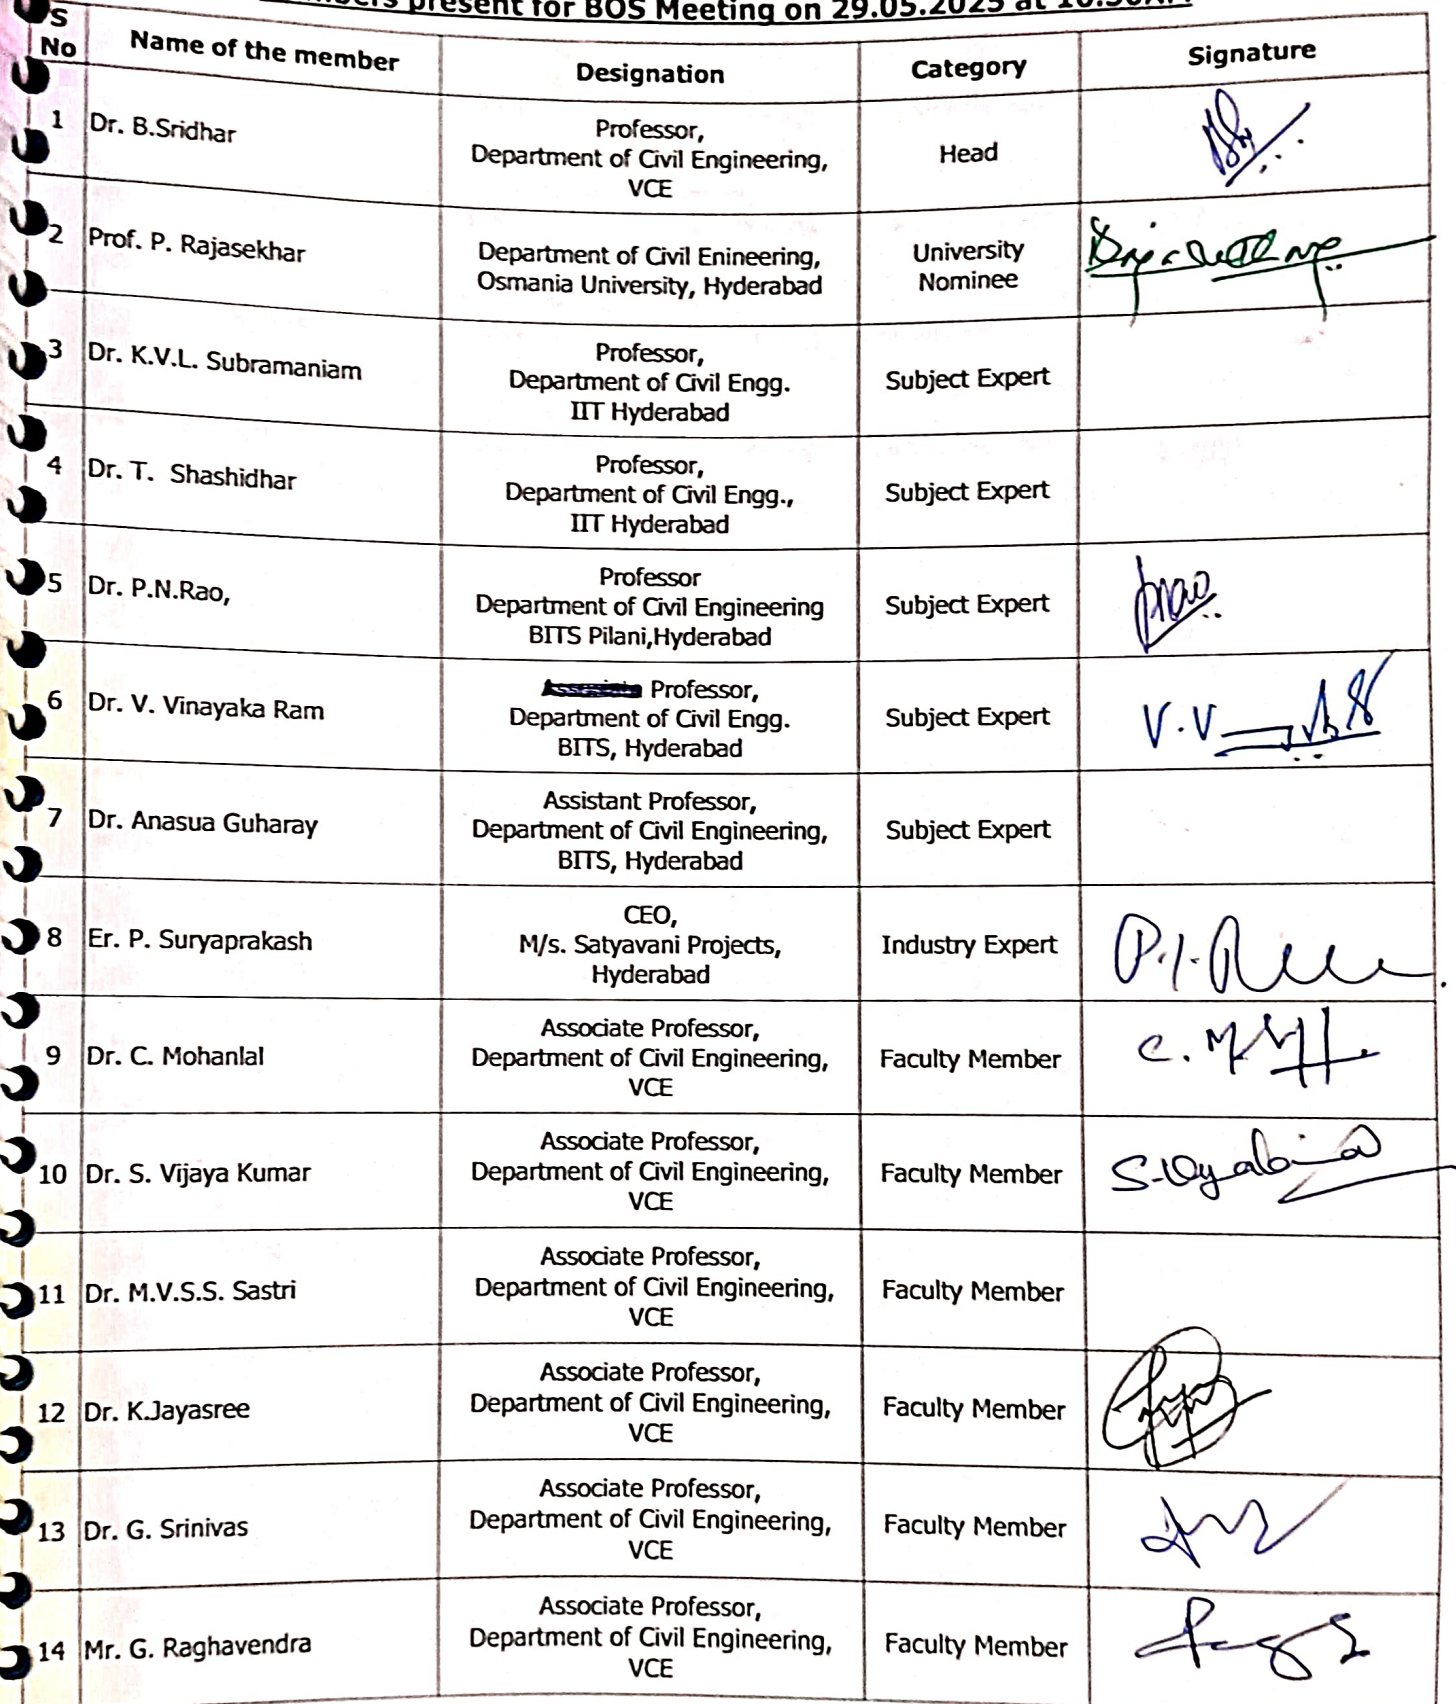 present for BOS Meeting on 29.05.2025 at
S No Name of the member Designation Category Signature
1 Dr. B.Sridhar Professor,
Department of Civil Engineering,
VCE Head
2 Prof. P. Rajasekhar Department of Civil Enineering,
Osmania University, Hyderabad University
Nominee
3 Dr. K.V.L. Subramaniam Professor,
Department of Civil Engg.
IIT Hyderabad Subject Expert
4 Dr. T. Shashidhar Professor,
Department of Civil Engg.,
IIT Hyderabad Subject Expert
5 Dr. P.N.Rao, Professor
Department of Civil Engineering
BITS Pilani,Hyderabad Subject Expert
6 Dr. V. Vinayaka Ram Professor,
Department of Civil Engg.
BITS, Hyderabad Subject Expert
V.V
7 Dr. Anasua Guharay Assistant Professor,
Department of Civil Engineering,
BITS, Hyderabad Subject Expert
8 Er. P. Suryaprakash CEO,
M/s. Satyavani Projects,
Hyderabad Industry Expert
9 Dr. C. Mohanlal Associate Professor,
Department of Civil Engineering,
VCE Faculty Member
10 Dr. S. Vijaya Kumar Associate Professor,
Department of Civil Engineering,
VCE Faculty Member
11 Dr. M.V.S.S. Sastri Associate Professor,
Department of Civil Engineering,
VCE Faculty Member
12 Dr. K.Jayasree Associate Professor,
Department of Civil Engineering,
VCE Faculty Member
13 Dr. G. Srinivas Associate Professor,
Department of Civil Engineering,
VCE Faculty Member
14 Mr. G. Raghavendra Associate Professor,
Department of Civil Engineering,
VCE Faculty Member